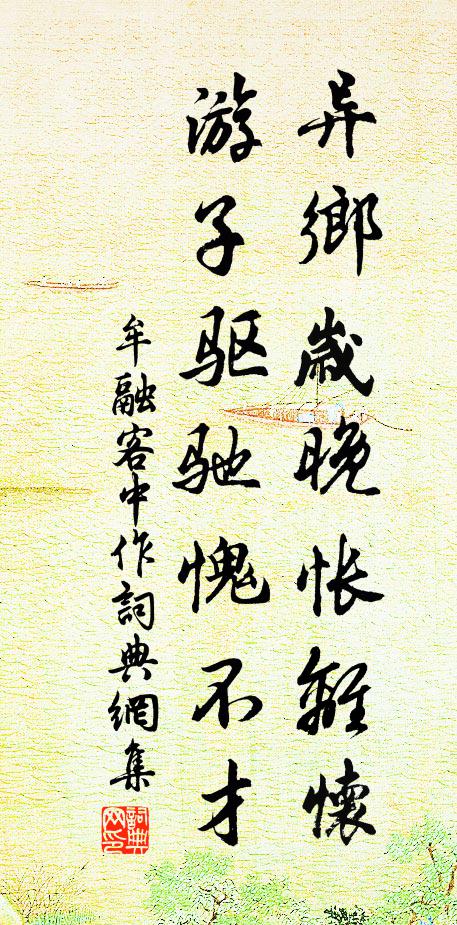 异鄉歲晚悵離懷
游子驱驰愧不才
牟融客中作詞典網集
詞典網印